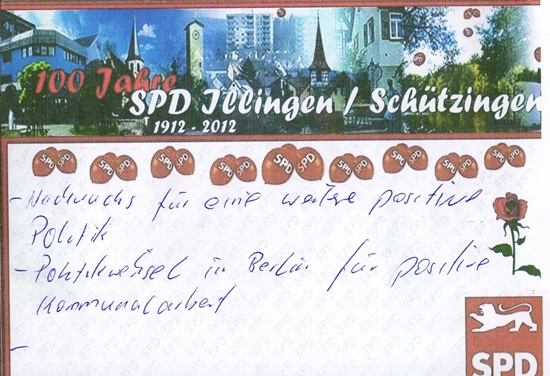 100 Jahre
SPD Illingen / Schützingen
1912 - 2012
SPD SPD SPD SPD SPD SPD SPD SPD SPD
- Nachwuchs für eine weitere positive
Politik
- Politikwechsel in Berlin für positive
Kommunalarbeit
-
SPD